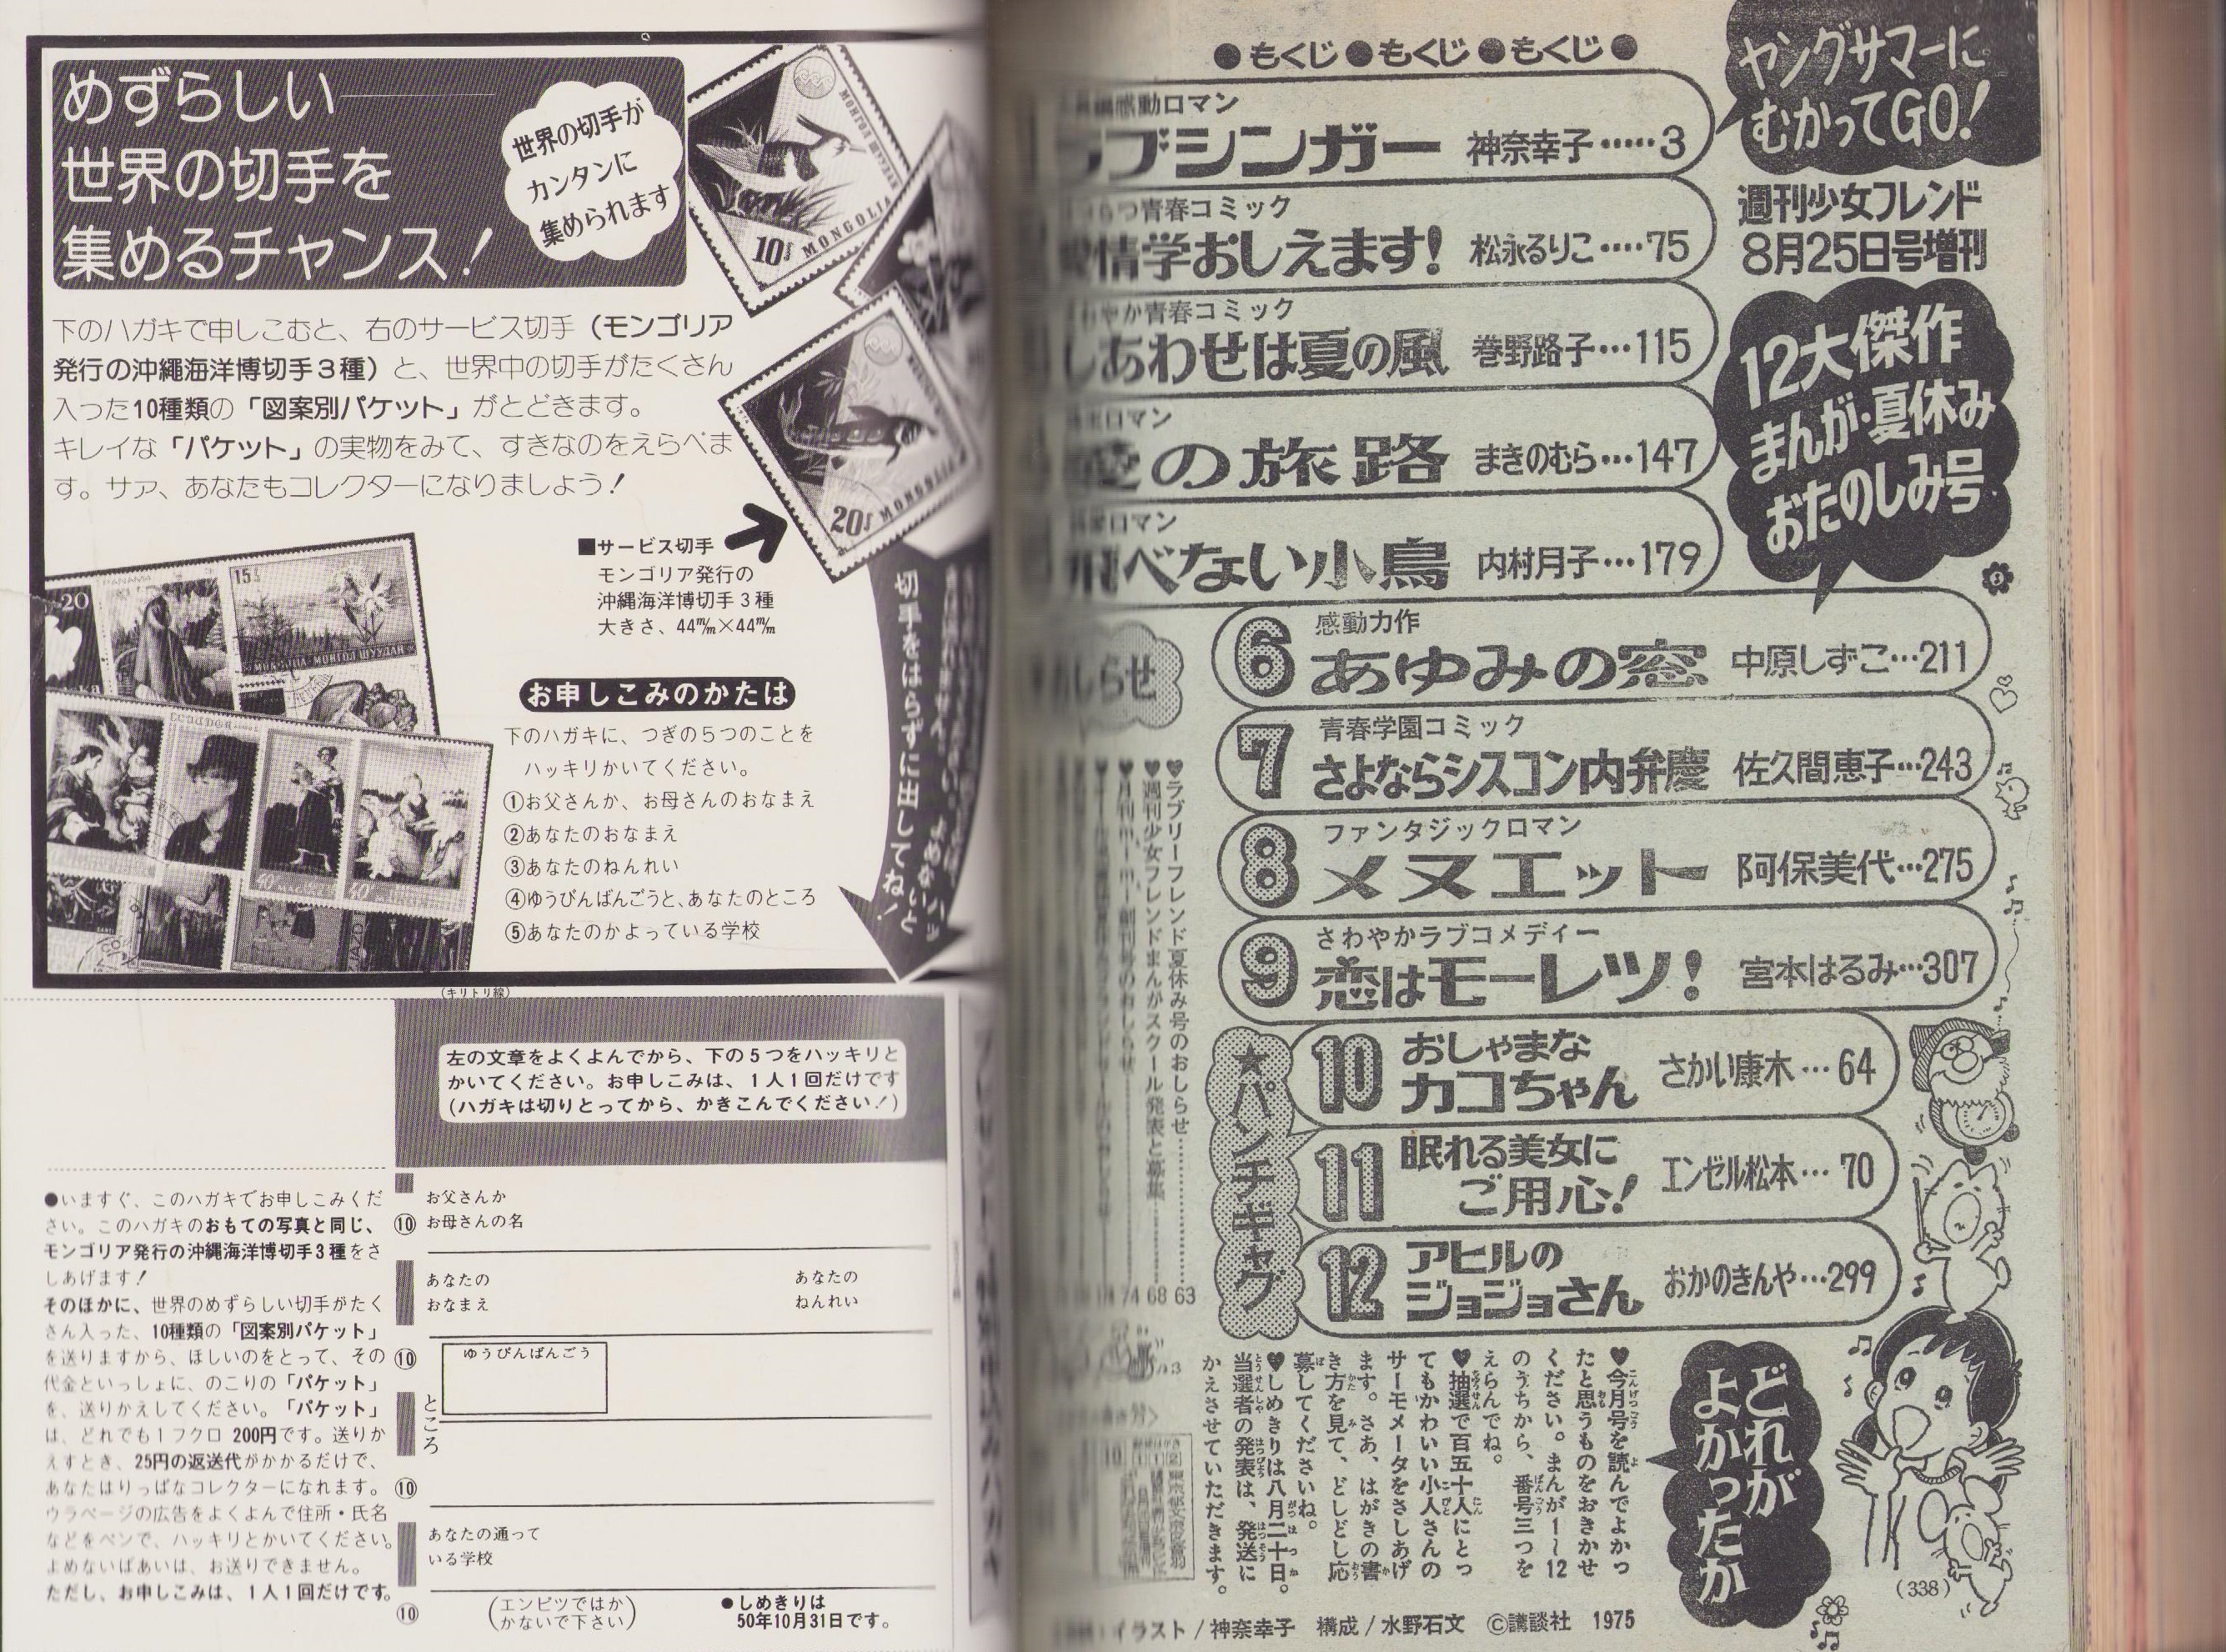 めずらしい
世界の切手を
集めるチャンス！
世界の切手が
カンタンに
集められます
下のハガキで申しこむと、右のサービス切手（モンゴリア
発行の沖縄海洋博切手３種）と、世界中の切手がたくさん
入った10種類の「図案別パケット」がとどきます。
キレイな「パケット」の実物をみて、すきなのをえらべま
す。サァ、あなたもコレクターになりましよう！
10
MONGOLIA
20
MONGOLIA
■サービス切手
モンゴリア発行の
沖縄海洋博切手３種
大きさ、44㎜×44㎜
切手をはらずに出してね！
お申しこみのかたは
下のハガキに、つぎの５つのことを
ハッキリかいてください。
①お父さんか、お母さんのおなまえ
②あなたのおなまえ
③あなたのねんれい
④ゆうびんばんごうと、あなたのところ
⑤あなたのかよっている学校
（キリトリ線）
左の文章をよくよんでから、下の５つをハッキリと
かいてください。お申しこみは、１人１回だけです
（ハガキは切りとってから、かきこんでください！）
●いますぐ、このハガキでお申しこみくだ
さい。このハガキのおもての写真と同じ、
モンゴリア発行の沖縄海洋博切手３種をさ
しあげます！
そのほかに、世界のめずらしい切手がたく
さん入った、10種類の「図案別パケット」
を送りますから、ほしいのをとって、その
代金といっしょに、のこりの「パケット」
を、送りかえしてください。「パケット」
は、どれでも１フクロ 200円です。送りか
えすとき、25円の返送代がかかるだけで、
あなたはりっぱなコレクターになれます。
ウラページの広告をよくよんで住所・氏名
などをペンで、ハッキリとかいてください。
よめないばあいは、お送りできません。
ただし、お申しこみは、１人１回だけです。
お父さんか
お母さんの名
あなたの
おなまえ
あなたの
ねんれい
ゆうびんばんごう
ところ
あなたの通って
いる学校
⑩
⑩
⑩
⑩
（エンピツではか
かないで下さい）
●しめきりは
50年10月31日です。
●もくじ●もくじ●もくじ●
ヤングサマーに
むかってGO！
週刊少女フレンド
8月25日号増刊
12大傑作
まんが・夏休み
おたのしみ号
感動ロマン
ブシンガー 神奈幸子……3
青春コミック
情学おしえます！ 松永るりこ……75
やか青春コミック
しあわせは夏の風 巻野路子…115
ロマン
の旅路 まきのむら…147
ロマン
べない小鳥 内村月子…179
6 感動力作
あゆみの窓 中原しずこ…211
7 青春学園コミック
さよならシスコン内弁慶 佐久間恵子…243
8 ファンタジックロマン
メヌエット 阿保美代…275
9 さわやかラブコメディー
恋はモーレツ！ 宮本はるみ…307
★パンチギャグ
10 おしゃまな
カコちゃん さかい康木…64
11 眠れる美女に
ご用心！ エンゼル松本…70
12 アヒルの
ジョジョさん おかのきんや…299
しらせ
♥ラブリーフレンド夏休み号のおしらせ……63
♥週刊少女フレンドまんがスクール発表と募集……68
74
どれが
よかったか
♥今月号を読んでよかっ
たと思うものをおきかせ
ください。まんが1～12
のうちから、番号三つを
えらんでね。
♥抽選で百五十人にとっ
てもかわいい小人さんの
サーモメータをさしあげ
ます。さあ、はがきの書
き方を見て、どしどし応
募してくださいね。
♥しめきりは八月二十日。
当選者の発表は、発送に
かえさせていただきます。
（338）
イラスト／神奈幸子 構成／水野石文 ©講談社 1975